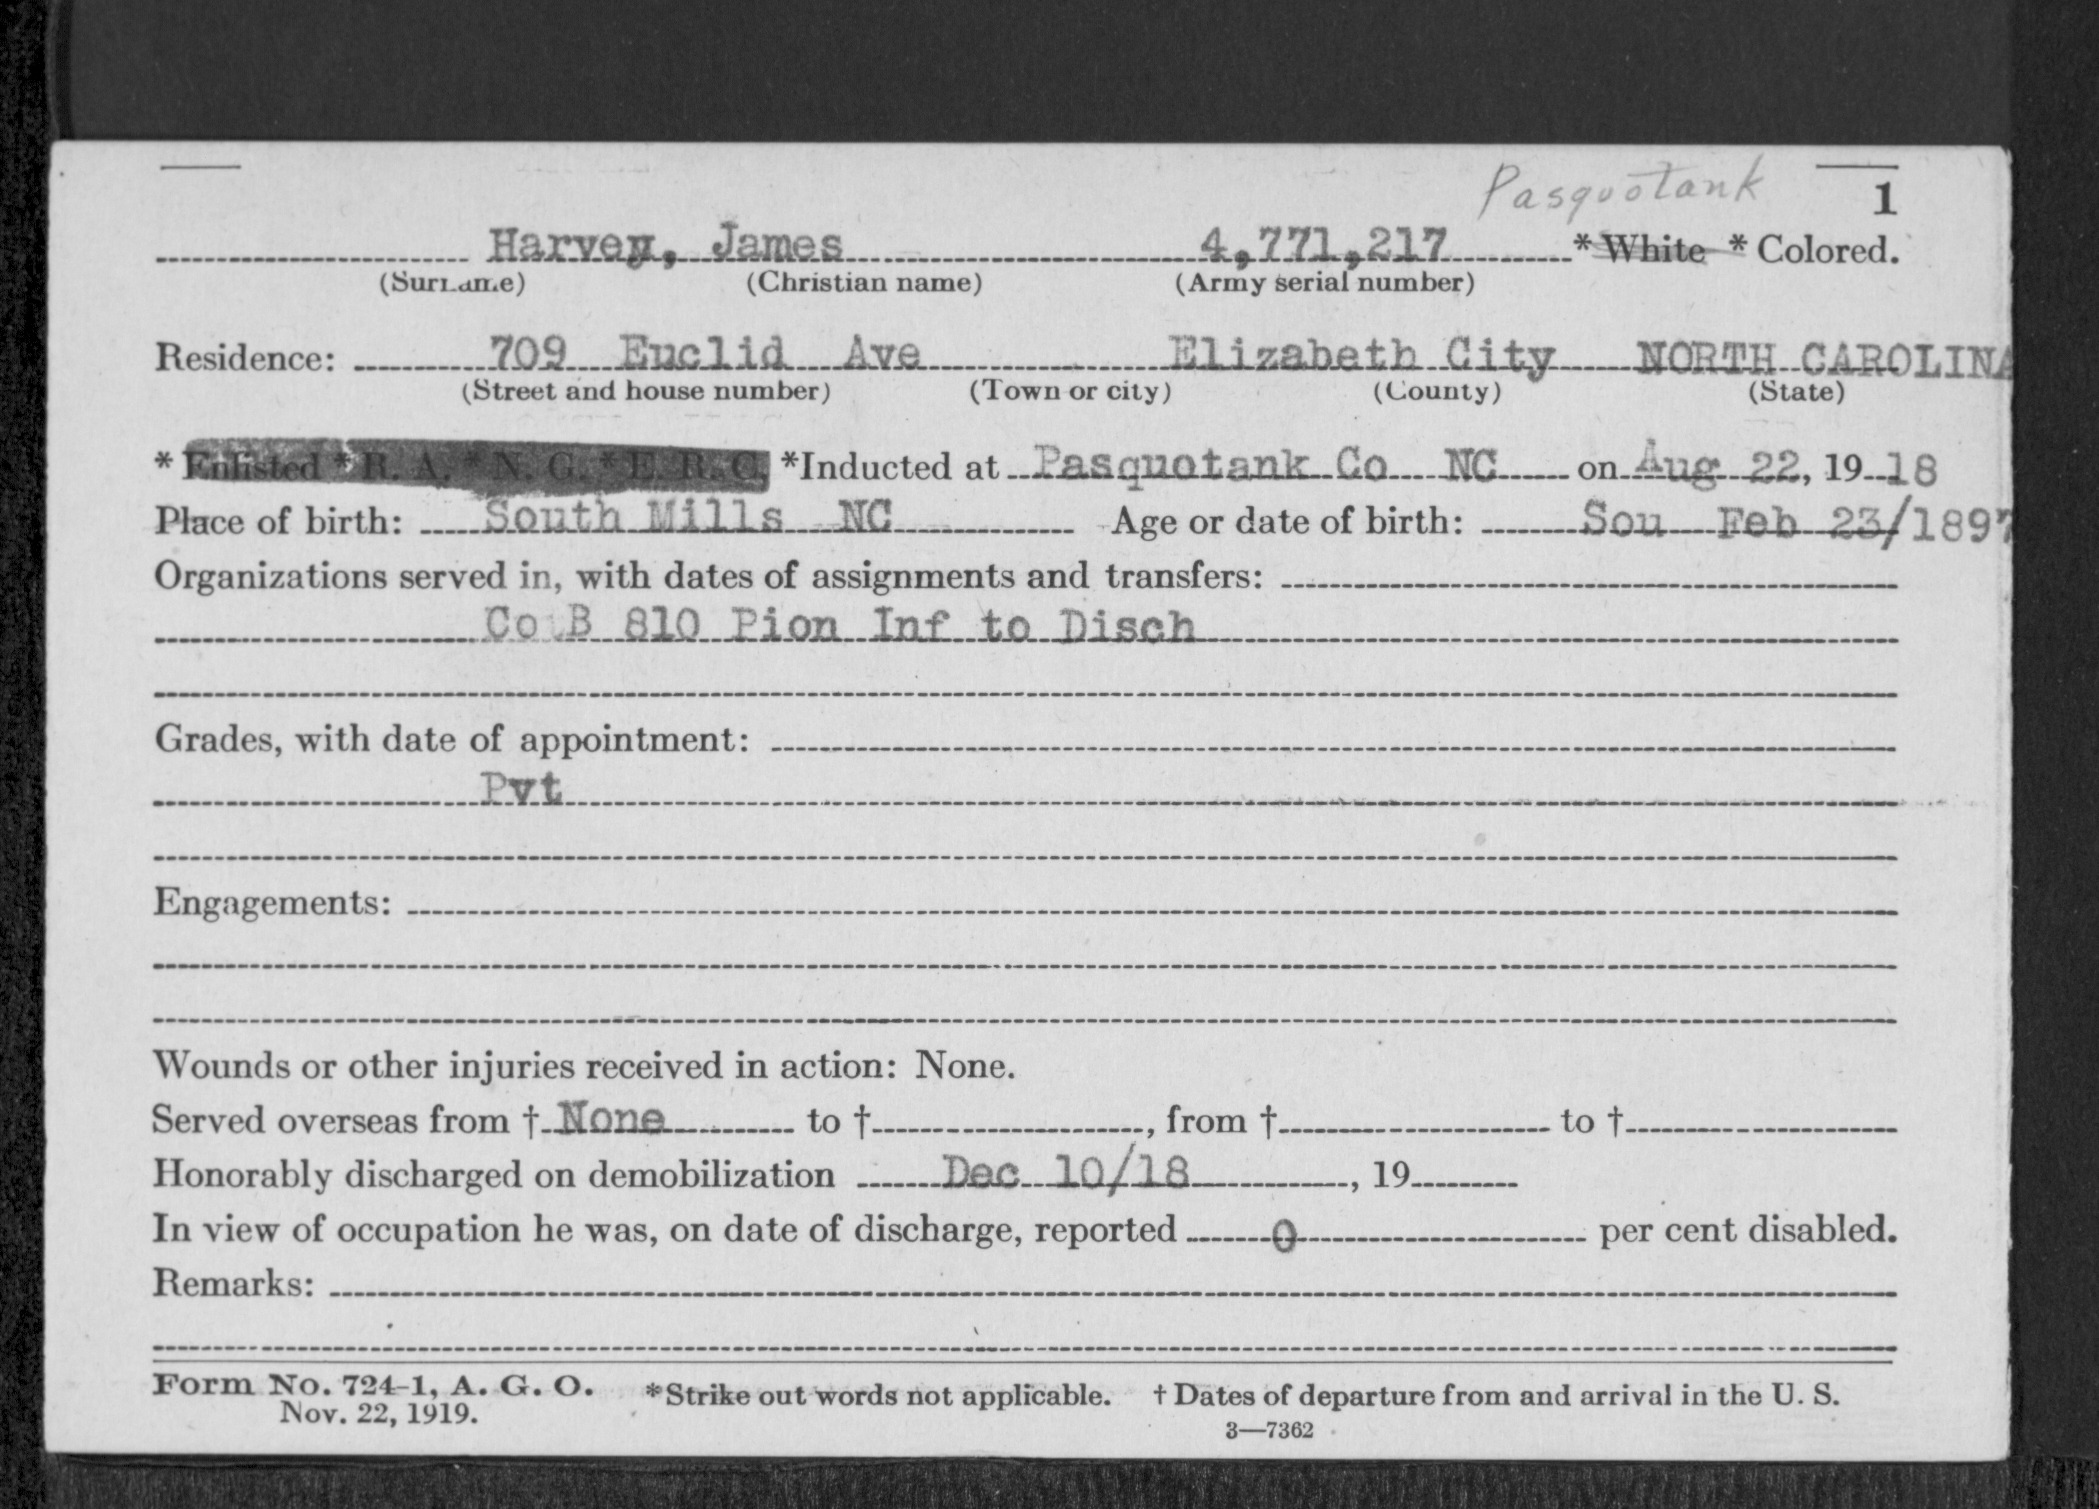 Pasquotank
1
Harvey, James 4,771,217 * White * Colored.
(Surname) (Christian name) (Army serial number)
Residence: 709 Euclid Ave Elizabeth City NORTH CAROLINA
(Street and house number) (Town or city) (County) (State)
* Enlisted * R. A. * N. G. * E. R. C. *Inducted at Pasquotank Co NC on Aug 22, 19 18
Place of birth: South Mills NC Age or date of birth: Sou Feb 23/1897
Organizations served in, with dates of assignments and transfers:
Co B 810 Pion Inf to Disch
Grades, with date of appointment:
Pvt
Engagements:
Wounds or other injuries received in action: None.
Served overseas from † None to †, from † to †
Honorably discharged on demobilization Dec 10/18, 19
In view of occupation he was, on date of discharge, reported 0 per cent disabled.
Remarks:
Form No. 724-1, A. G. O. *Strike out words not applicable. † Dates of departure from and arrival in the U. S.
Nov. 22, 1919.
3—7362